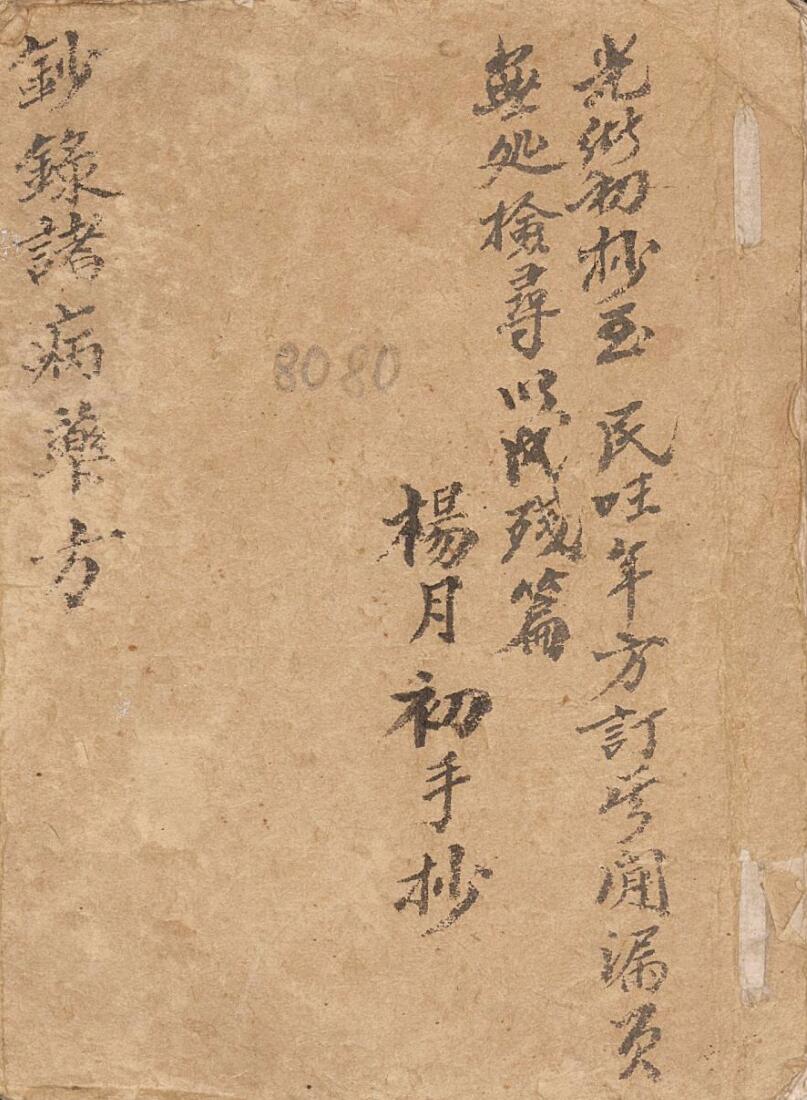 光初抄至 民年方訂間漏頁
無処檢尋以成残篇
楊月初手抄
鈔錄諸病藥方
8080